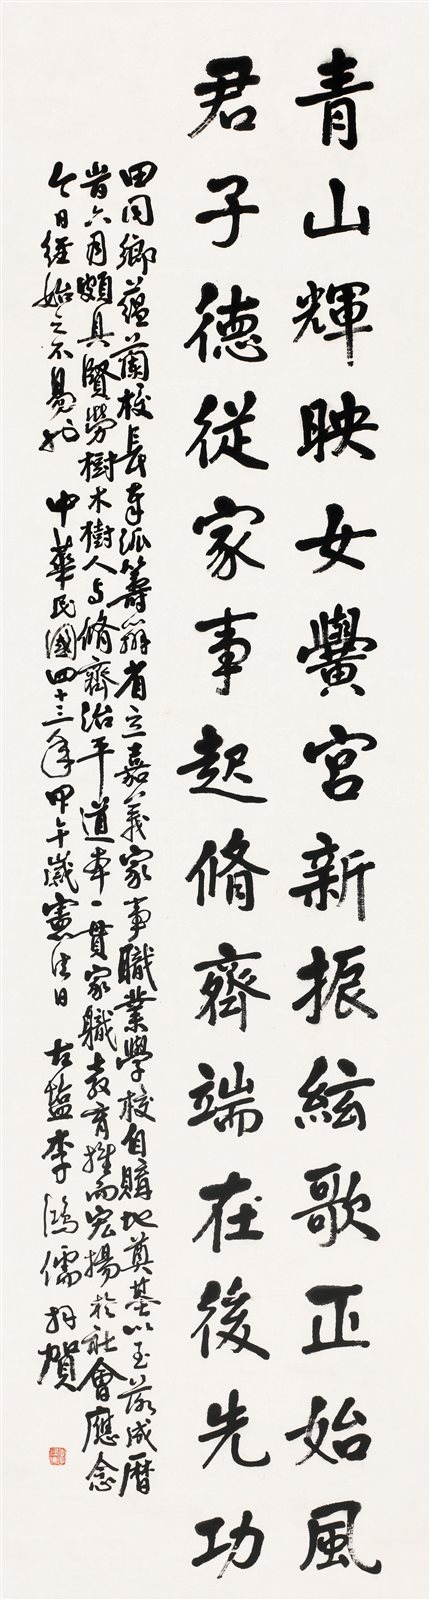 青山輝映女黌宮新振絃歌正始風
君子德從家事起脩齊端在後先功
田同鄉蘊蘭校長奉派籌辦省立嘉義家事職業學校自購地奠基以至落成曆
旹六月頗具賢勞樹木樹人与脩齊治平道本一貫家職教育推而宏揚於社會應念
今日經始之不易也 中華民國四十三年甲午歲憲法日 古鹽李鴻儒拜賀